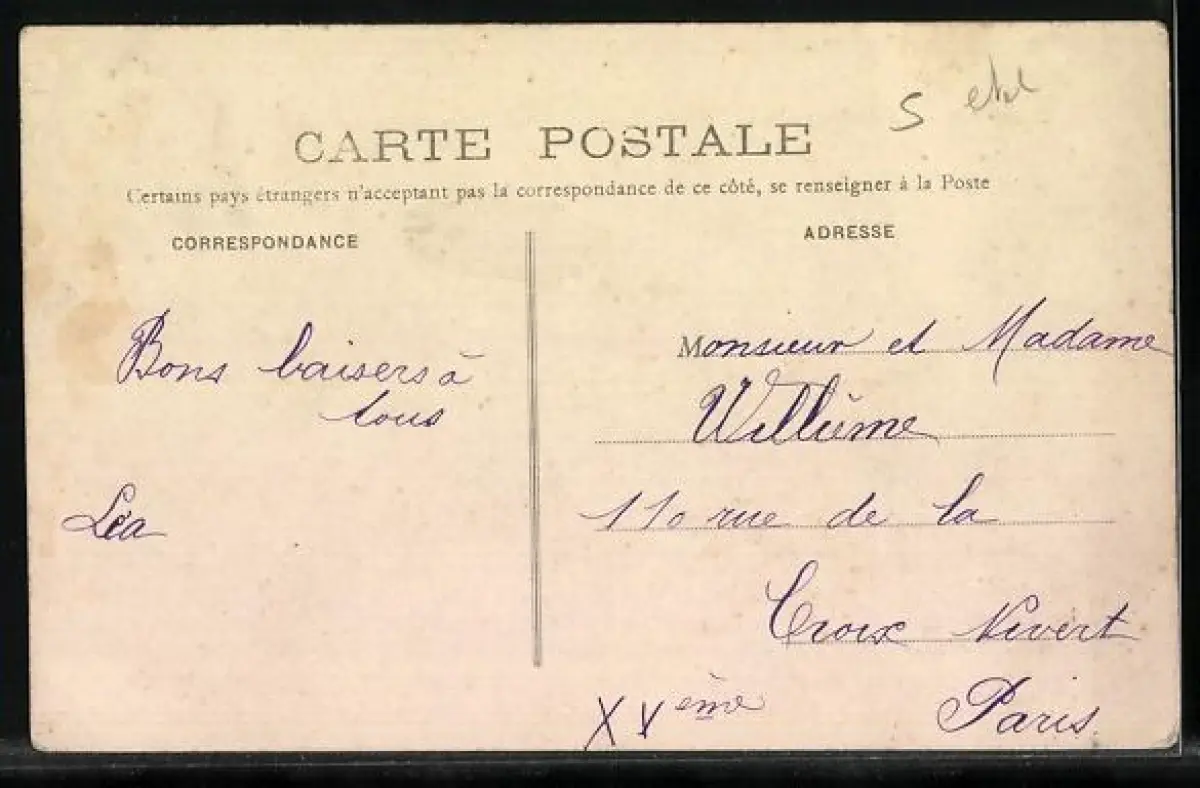 CARTE POSTALE
Certains pays étrangers n'acceptant pas la correspondance de ce côté, se renseigner à la Poste
CORRESPONDANCE
Bons baisers à
tous
Léa
ADRESSE
Monsieur et Madame
Willième
110 rue de la
Croix Nivert
Paris
XVème